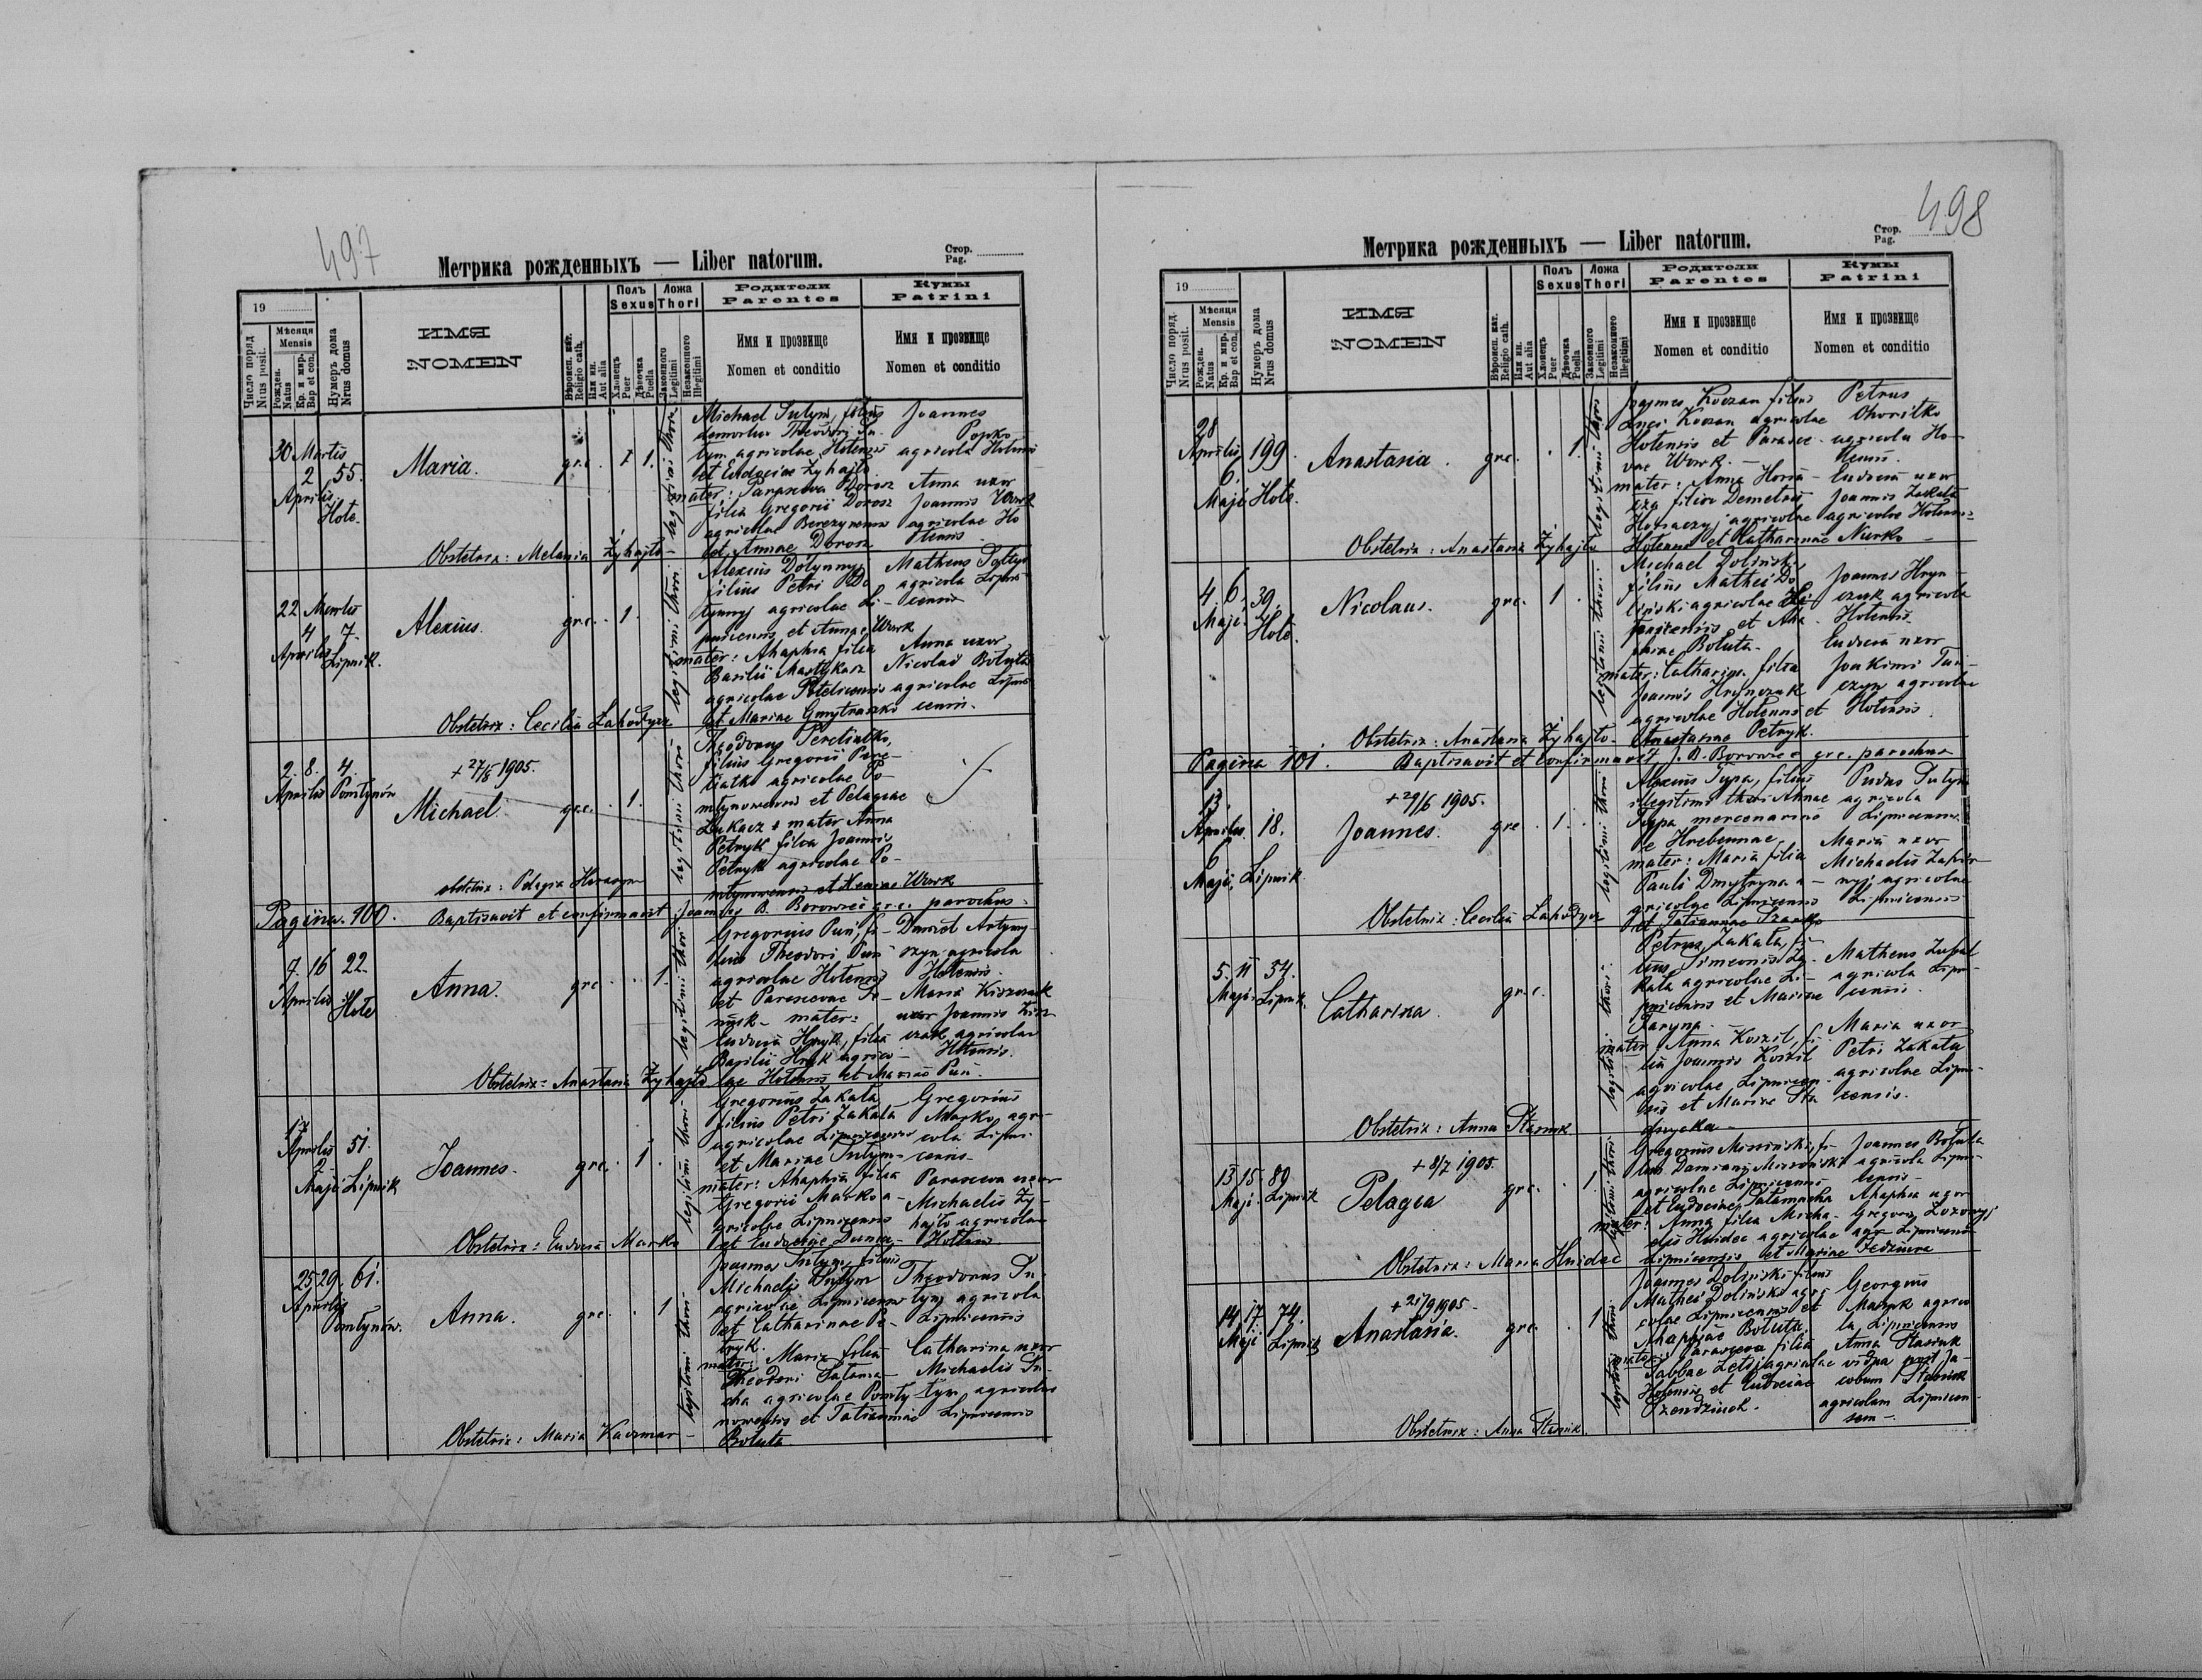 497
Метрика рожденныхъ — Liber natorum.
Стор.
Pag.
19
Число поряд.
Nrus posit.
Мѣсяця
Mensis
Рожден.
Natus
Кр. и мир.
Bap et con.
Нумеръ дома
Nrus domus
ИМЯ
NOMEN
Вѣроисп. кат.
Religio cath.
Или ин.
Aut alia
Полъ
Sexus
Хлопецъ
Puer
Дѣвочка
Puella
Ложа
Thori
Законного
Legitimi
Незаконного
Illegitimi
Родители
Parentes
Имя и прозвище
Nomen et conditio
Кумы
Patrini
Имя и прозвище
Nomen et conditio
30 Martis
2 55.
Aprilis
Hote.
Maria.
gr.c. 1.
legitimi thori
Michael Sulym, filius
Theodori Su-
lym agricolae Hotensis
et Eudociae Żyhajło
mater: Parasceva Dorosz
filia Gregorii Dorosz
agricolae
et Annae Dorosz
Joannes
Popko
agricola Hotensis
Anna uxor
Joannis Work
agricolae Ho
tensis
Obstetrix: Melania Żyhajło
22 Martis
4 7.
Aprilis Lipnik.
Alexius.
gr.c. 1.
legitimi thori
Alexius Dołynnyj
filius Petri Do
łynnyj agricolae Li-
pnicensis et Annae Work
mater: Ahaphia filia
Basilii
agricolae
et Mariae
Matheus
agricola Lipni-
censis
Anna uxor
Nicolai Bołuta
agricolae Lipni-
censis.
Obstetrix: Cecilia Łahodycz
2. 8. 4.
Aprilis Pomłynów
+ 27/5 1905.
Michael
gr.c. 1.
legitimi thori
Theodorus
filius Gregorii Pere-
tiatko agricolae Po-
młynowensis et Pelagiae
Łukacz + mater Anna
Petryk filia Joannis
Petryk agricolae Po-
młynowensis et Work
obstetrix: Pelagia
Pagina. 100. Baptisavit et confirmavit Joannes B. Borowiec gr.c. parochus.
7. 16 22.
Aprilis Hote
Anna.
gr.c. 1.
legitimi thori
Gregorius Pun, fi-
lius Theodori Pun
agricolae Hotensis
et Parascevae
mater:
Eudocia Hnyk, filia
Basilii Hnyk agrico-
lae Hotensis et Mariae Pun.
Daniel Artymy-
szyn agricola
Hotensis.
Maria
uxor Joannis
agricolae
Hotensis.
Obstetrix: Anastasia Żyhajło
17
Aprilis 51.
2
Maji Lipnik
Joannes.
gr.c. 1.
legitimi thori
Gregorius Zakała
filius Petri Zakała
agricolae Lipnicensis
et Mariae Sulym-
mater: Ahaphia filia
Gregorii Marko a-
gricolae Lipnicensis
et Eudociae
Gregorius
Marko agri-
cola Lipni-
censis
Parasceva uxor
Michaelis Ży-
hajło agricolae
Hotensis
Obstetrix: Eudocia Marko
25 29. 61.
Aprilis
Pomłynów.
Anna.
gr.c. 1
legitimi thori
Joannes Sulym, filius
Michaelis Sulym
agricolae Lipnicensis
et Catharinae Pe-
tryk.
mater: Maria filia
Theodori Salama-
cha agricolae Pomły-
nowensis et Tatiannae
Bołuta
Theodorus Su-
lym agricola
Lipnicensis
Catharina uxor
Michaelis Su-
lym agricolae
Lipnicensis
Obstetrix: Maria Kaczmar
498
Метрика рожденныхъ — Liber natorum.
Стор.
Pag.
19
Число поряд.
Nrus posit.
Мѣсяця
Mensis
Рожден.
Natus
Кр. и мир.
Bap et con.
Нумеръ дома
Nrus domus
ИМЯ
NOMEN
Вѣроисп. кат.
Religio cath.
Или ин.
Aut alia
Полъ
Sexus
Хлопецъ
Puer
Дѣвочка
Puella
Ложа
Thori
Законного
Legitimi
Незаконного
Illegitimi
Родители
Parentes
Имя и прозвище
Nomen et conditio
Кумы
Patrini
Имя и прозвище
Nomen et conditio
28
Aprilis 199.
6
Maji Hote.
Anastasia.
gr.c. 1.
legitimi thori
Joannes Koczan filius
Koczan agricolae
Hotensis et Parasce-
vae Work.
mater: Anna
filia Demetrii
agricolae
Hotensis et Katharinae Nurko
Petrus
Choritko
agricola Ho-
tensis.
Eudocia uxor
Joannis Zakała
agricolae Hotensis
Obstetrix: Anastasia Żyhajło
4 6 39.
Maji. Hote.
Nicolaus.
gr.c. 1
legitimi thori
Michael Doliński
filius Mathei Do-
liński agricolae Li-
pnicensis et Aha-
phiae Bołuta.
mater: Catharina filia
Joannis Hrynczak
agricolae Hotensis et
Anastasiae Petryk.
Joannes Hryn-
czak agricola
Hotensis.
Eudocia uxor
Joakimi
agricolae
Hotensis.
Obstetrix: Anastasia Żyhajło
Pagina 101. Baptisavit et confirmavit J. B. Borowiec gr.c. parochus
13
Aprilis 18.
6
Maji Lipnik
+ 29/6 1905.
Joannes.
gr.c. 1.
legitimi thori
Alexius Typa, filius
illegitimi thori Annae
Typa mercenarius
e Hrebennae,
mater: Maria filia
Pauli Dmytryna a-
gricolae Lipnicensis
et Tatiannae
Sulym
agricola
Lipnicensis.
Maria uxor
Michaelis
agricolae
Lipnicensis
Obstetrix: Cecilia Łahodycz
5. 11 54.
Maji. Lipnik.
Catharina.
gr.c.
legitimi thori
Petrus Zakała, fi-
lius Simeonis Za-
kała agricolae Li-
pnicensis et Mariae
Faryna.
mater: Anna Koszil, fi-
lia Joannis Koszil
agricolae Lipnicen-
sis et Mariae
Matheus
agricola Lipni-
censis.
Maria uxor
Petri Zakała
agricolae Lipni-
censis.
Obstetrix: Anna Stasiuk
13 15. 89
Maji. Lipnik
+ 8/7 1905.
Pelagia
gr.c. 1.
legitimi thori
Gregorius fi-
lius Damiani
agricolae Lipnicensis
et Eudociae Salamacha
mater: Anna filia Micha-
elis Hnidec agricolae
Lipnicensis et Mariae
Joannes Bołuta
agricola Lipni-
censis
Ahaphia uxor
Gregorii
agr. Lipnicensis
Obstetrix: Maria Hnidec
14 17. 74.
Maji Lipnik
+ 21/9 1905.
Anastasia.
gr.c. 1
legitimi thori
Joannes Doliński filius
Mathei Doliński agri-
colae Lipnicensis et
Ahaphiae Bołuta.
mater: Parasceva filia
Sabbae agricolae
Hotensis et Eudociae
Georgius
agrico-
la Lipnicensis
Anna Stasiuk
vidua post Ja-
cobum Stasiuk
agricolam Lipnicen-
sem.
Obstetrix: Anna Stasiuk.